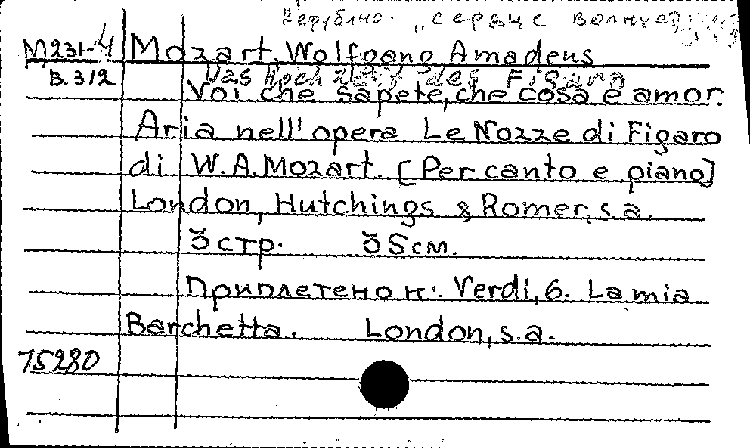 сердце волнует
M231-4 Mozart, Wolfgang Amadeus
B.312 Das Hochzeit des Figaro
Voi che sapete, che cosa è amor.
Aria nell'opera Le Nozze di Figaro
di W.A. Mozart. [Per canto e piano]
London, Hutchings & Romer, s.a.
3 стр. 35 см.
Приплетено к: Verdi, G. La mia
Barchetta. London, s.a.
75280